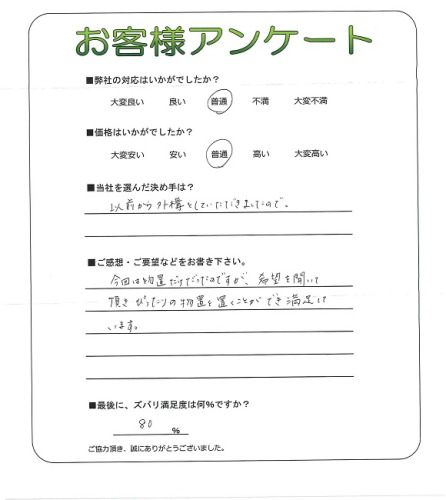 お客様アンケート
■弊社の対応はいかがでしたか？
大変良い 良い 普通 不満 大変不満
■価格はいかがでしたか？
大変安い 安い 普通 高い 大変高い
■当社を選んだ決め手は？
以前から外構をしていただきましたので。
■ご感想・ご要望などをお書き下さい。
今回は物置だけだったのですが、希望を聞いて
頂きぴったりの物置を置くことができ満足して
います。
■最後に、ズバリ満足度は何%ですか？
80 %
ご協力頂き、誠にありがとうございました。